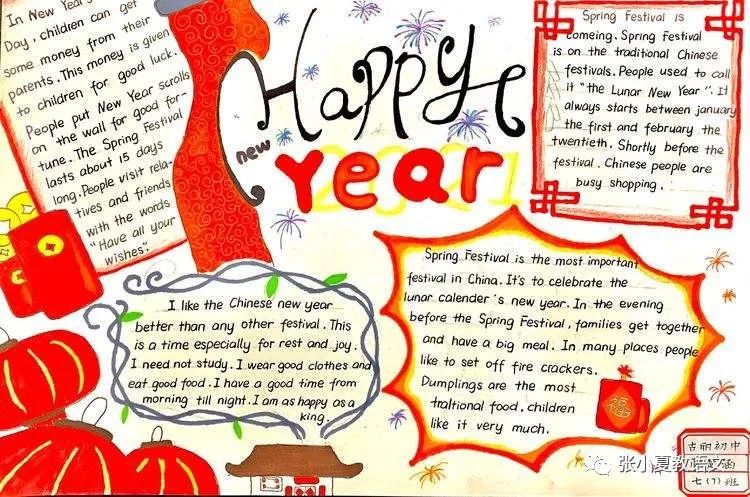 In New Year's
Day, children can get
some money from their
parents. This money is given
to children for good luck.
People put New Year scrolls
on the wall for good for-
tune. The Spring Festival
lasts about 15 days
long. People visit rela-
tives and friends
with the words
"Have all your
wishes".
Happy
new
Year
2021
Spring Festival is
comeing. Spring Festival
is on the traditional Chinese
festivals. People used to call
it "the Lunar New Year". It
always starts between january
the first and february the
twentieth. Shortly before the
festival. Chinese people are
busy shopping.
I like the Chinese new year
better than any other festival. This
is a time especially for rest and joy.
I need not study. I wear good clothes and
eat good food. I have a good time from
morning till night. I am as happy as a
king.
Spring Festival is the most important
festival in China. It's to celebrate the
lunar calender's new year. In the evening
before the Spring Festival, families get together
and have a big meal. In many places people
like to set off fire crackers.
Dumplings are the most
traltional food, children
like it very much.
福
初中
七(7)班
张小夏教语文